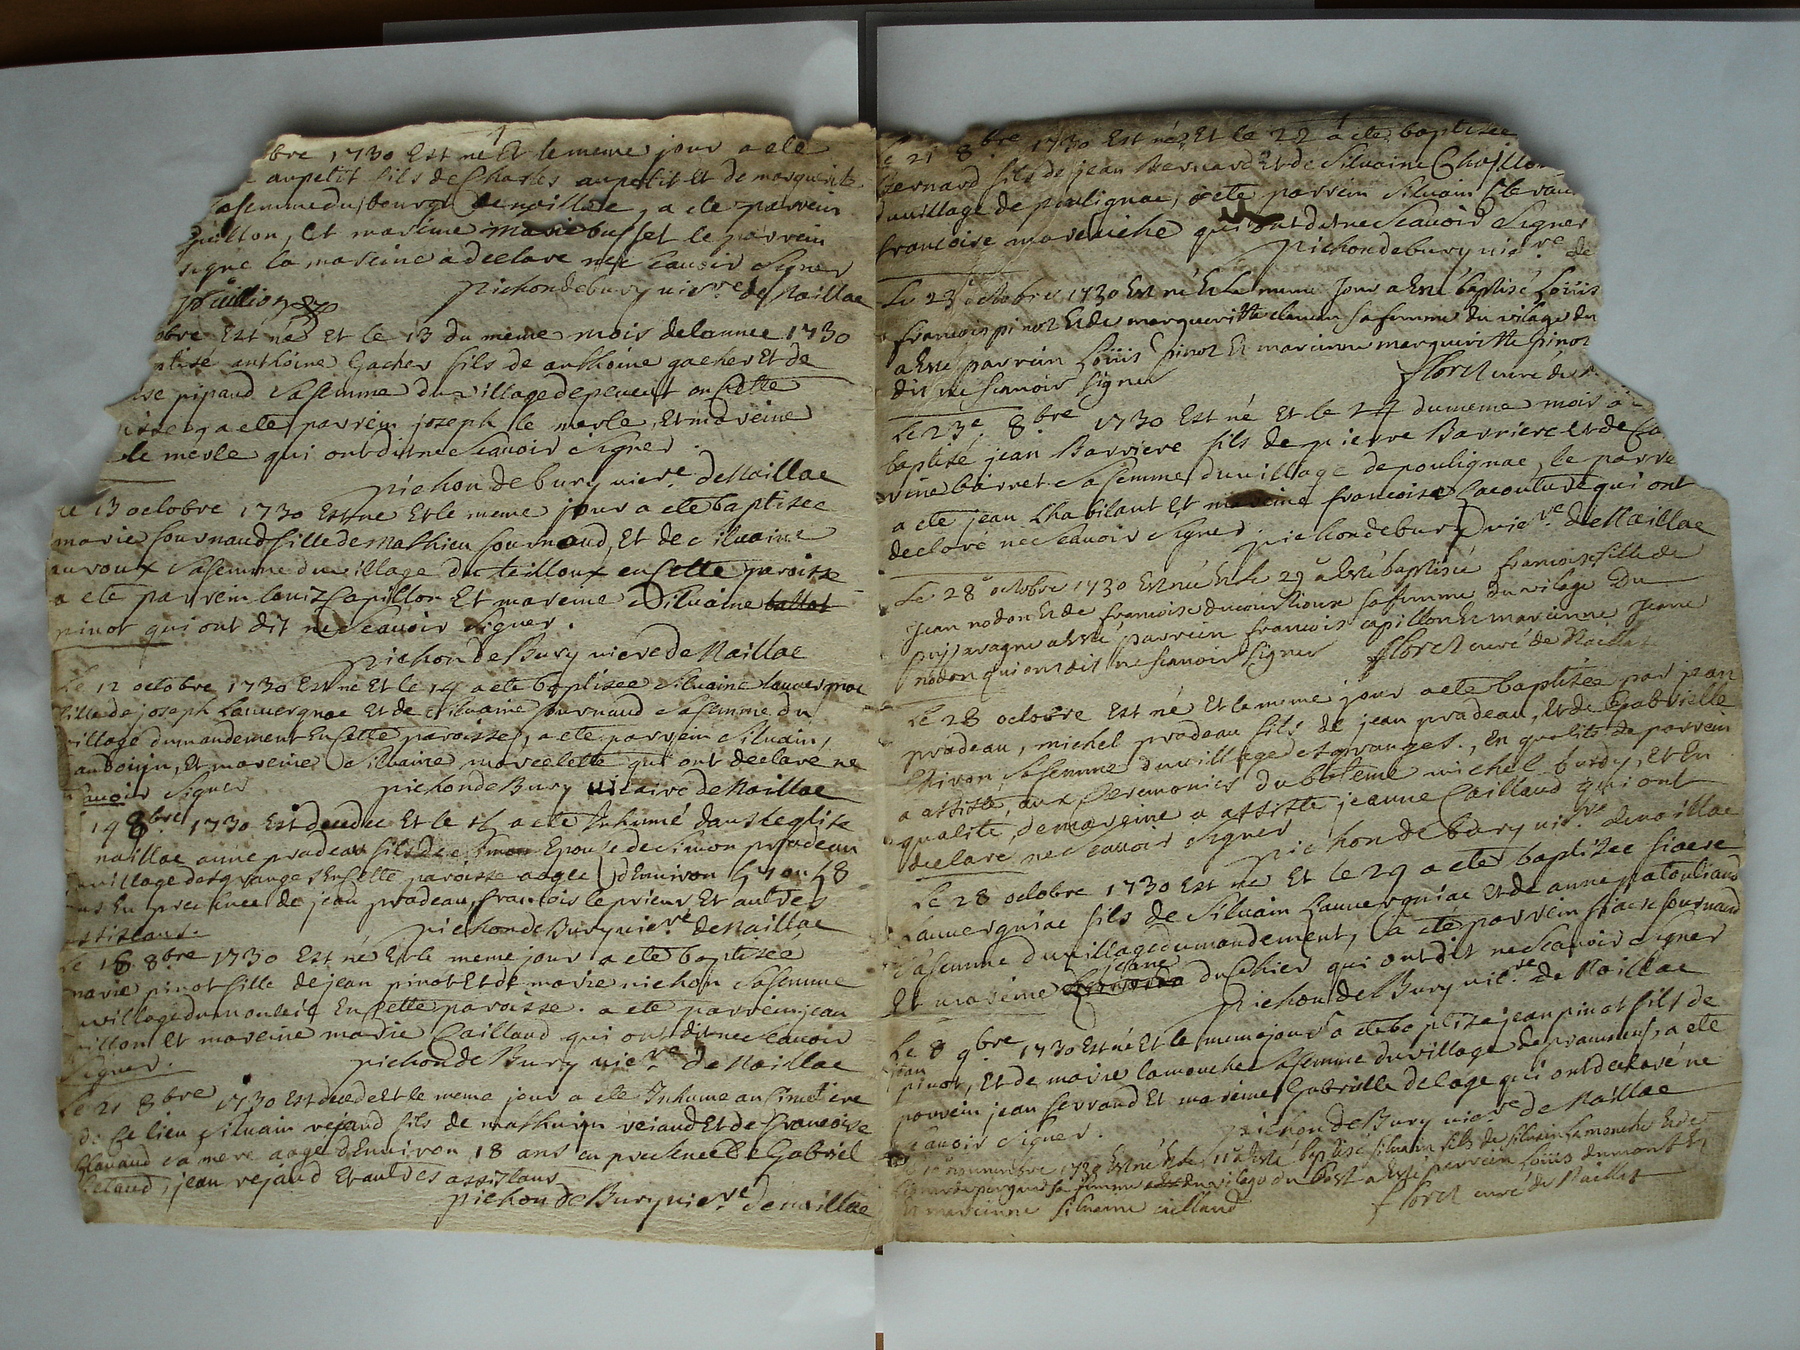 bre 1730 Est né Et le meme jour a ete
aupetit fils de Charles aupetit et de marguerite
sa femme du bourg de naillac, a ete parrein
Et mareine marie et le parrein
signe la mareine a declare ne scauoir signer
pichon de bury vicre de Naillac
bre Est né Et le 13 du meme mois de lannee 1730
anthoine gacher fils de anthoine gacher Et de
pipaud sa femme du village de en Cette
a ete parrein joseph le merle, Et mareine
le merle qui ont dit ne scauoir signer.
pichon de bury vicre. de Naillac
13 octobre 1730 Est ne Et le meme jour a ete baptisee
marie fournaud fille de mathieu fournaud, Et de silvaine
auroux sa femme du village du teilloux en Cette paroisse
a ete parrein Capillon Et mareine silvaine ballot
pinot qui ont dit ne scauoir signer.
pichon de Bury vicre de Naillac
Le 12 octobre 1730 Est né Et le 14 a ete baptisee silvaine lauvergnac
fille de joseph Lauvergnac Et de silvaine fournaud sa femme du
village du mandement En Cette paroisse, a ete parrein silvain
Et mareine silvaine marcelette qui ont declare ne
scauoir signer pichon de Bury vicaire de Naillac
14 8bre 1730 Est decedee Et le 15 a ete Inhumé dans leglise
naillac anne pradeau Epouse de simon pradeau
village des granges En Cette paroisse aagee dEnviron 57 ou 58
ans En presence de jean pradeau, francois le prieur Et autres
assistans. pichon de Bury vicre. de Naillac
Le 18 8bre 1730 Est né Et le meme jour a ete baptisee
marie pinot fille de jean pinot Et de marie nichon sa femme
village du En Cette paroisse. a ete parrein jean
Et mareine marie Caillaud qui ont dit ne scauoir
signer. pichon de Bury vicre de Naillac
Le 21 8bre 1730 Est decede Et le meme jour a ete Inhume au Simetiere
de Ce lieu silvain rejaud fils de mathurin rejaud Et de francoise
sa mere aage dEnviron 18 ans en presence de Gabriel
jean rejaud Et autres assistans
pichon de Bury vicre. de naillac
Le 21 8bre 1730 Est né Et le 22 a ete baptisee
Bernard fils de jean Bernard Et de Silvaine
du village de poulignac, a ete parrein silvain
francoise qui ont dit ne scauoir signer
pichon de bury vicre. de
Le 23 octobre 1730 Est né Et le meme Jour a Esté baptisé Loüis
francois pinot Et de margueritte sa femme du vilage du
a Esté parrein Loüis pinot Et mareinne marguerritte pinot
dit ne scauoir signer floret curé de
Le 23e. 8bre 1730 Est né Et le 24 du meme mois a
baptisé jean Barriere fils de pierre Barriere Et de
barret sa femme du village de poulignac, le parre
a ete jean Lhabilant Et mareine francoise Lacouture qui ont
declaré ne scauoir signer pichon de bury vicre. de Naillac
Le 28 octobre 1730 Est née Et le 29 a Esté baptisée francoise fille de
Jean nodon Et de francoise sa femme du vilage du
a Esté parrein francois capillon Et mareinne Jeanne
nodon qui ont dit ne scauoir signer floret curé de Naillat
Le 28 octobre Est né Et le meme jour a ete baptisee par jean
pradeau, michel pradeau fils de jean pradeau, Et de Gabrielle
sa femme du village des granges, En qualité de parrein
a assisté aux Ceremonies du bateme michel Et En
qualité de mareine a assisté jeanne Caillaud qui ont
declare ne scauoir signer pichon de bury vicre. de naillac
Le 28 octobre 1730 Est ne Et le 29 a ete baptisee fiacre
Lauvergniac fils de silvain Lauvergniac Et de anne patouliaud
sa femme du village du mandement, a ete parrein fiacre fournaud
Et mareine du Chier qui ont dit ne scauoir signer
pichon de Bury vicre. de Naillac
Le 8 9bre 1730 Est né Et le meme jour a ete baptisee jean pinot fils de
jean
pinot, Et de marie lamouche sa femme du village de a ete
parrein jean ferrand Et mareine Gabrielle delage qui ont declaré ne
scauoir signer. pichon de Bury vicre de Naillac
novembre 1730 Est né Et le 11 a Esté baptisé silvain fils de silvain Lamouche Et de
sa femme du vilage du bost a Esté parrein Loüis dumont
Et mareinne silvenne caillaud floret curé de Naillat